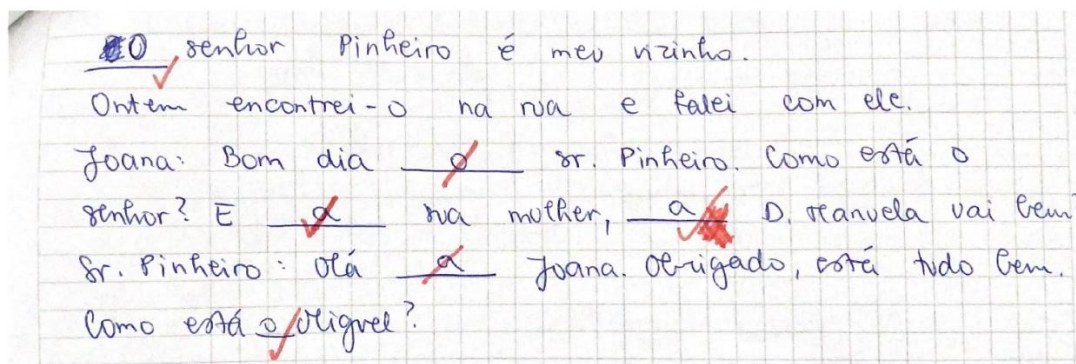 O senhor Pinheiro é meu vizinho.
Ontem encontrei-o na rua e falei com ele.
Joana: Bom dia o sr. Pinheiro. Como está o
senhor? E a sua mulher, a D. Manuela vai bem?
Sr. Pinheiro: Olá a Joana. Obrigado, está tudo bem.
Como está o Miguel?